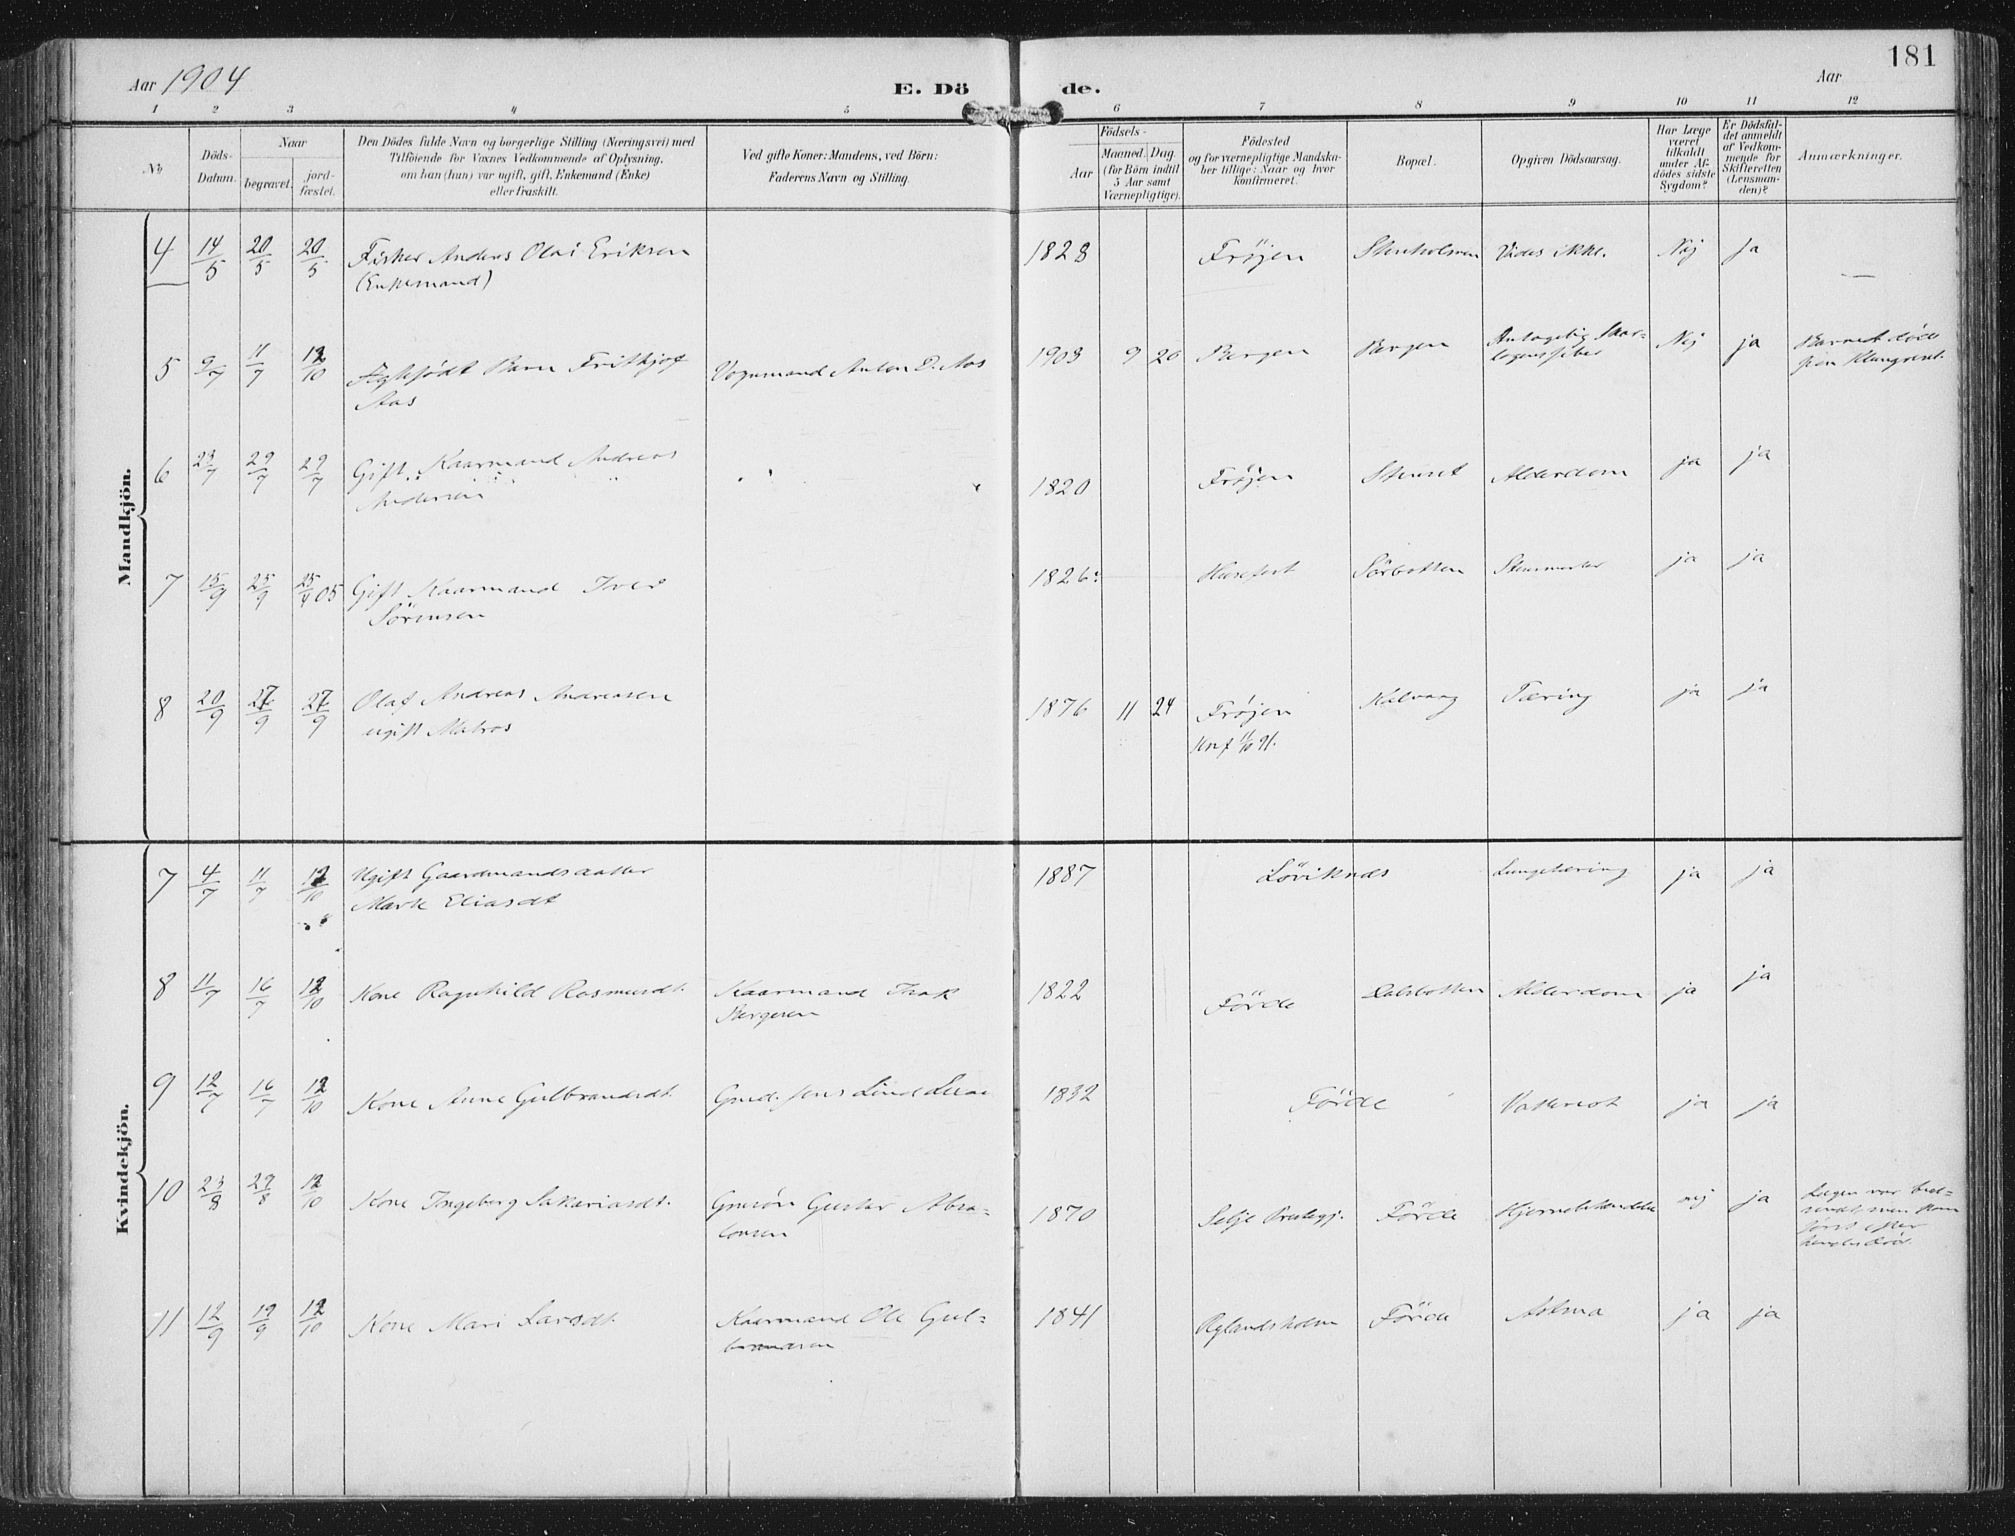 181
Aar 1904
E. Döde.
Aar
1 2 3 4 5 6 7 8 9 10 11 12
No.
Döds-Datum.
Naar
begravet.
jord-fæstet.
Den Dödes fulde Navn og borgerlige Stilling (Næringsvei) med
Tilföiende for Voxnes Vedkommende af Oplysning,
om han (hun) var ugift, gift, Enkemand (Enke)
eller fraskilt.
Ved gifte Koner: Mandens, ved Börn:
Faderens Navn og Stilling.
Födsels-
Aar
Maaned. Dag.
(for Börn indtil
5 Aar samt
Værnepligtige).
Födested
og for værnepligtige Mandska-
ber tillige: Naar og hvor
konfirmeret.
Bopæl.
Opgiven Dödsaarsag.
Har Læge
været
tilkaldt
under Af-
dödes sidste
Sygdom?
Er Dödsfal-
det anmeldt
af Vedkom-
mende for
Skifteretten
(Lensman-
den)?
Anmærkninger.
Mandkjön.
4 14/5 20/5 20/5 Fisker Anders Olai Eriksen 1828 Frøjen Stenholmen Vides ikke. Nej Ja —
(Enkemand)
5 9/7 11/7 12/10 Barn Fritkjof Vognmand Anton D. Aas 1903 9 20 Bergen Bergen Antagelig Skar- Nej ja
Aas lagensfeber
6 23/7 29/7 29/7 Gift Kaarmand Andreas 1820 Frøjen Stenset Alderdom ja ja
Andersen
7 15/9 25/9 25/4 05 Gift Kaarmand Iver 1826 Husefest Sørbotten ja ja
Sörensen
8 20/9 27/9 27/9 Olaf Andreas Andreasen 1876 11 24 Frøjen Kalvaag Tæring ja ja
ugift Matros Konf 11/10 91.
Kvindekjön.
7 4/7 11/7 12/10 Ugift Gaardmandsdatter 1887 Löviknes Lungetæring ja ja
Marte Eliasdt
8 11/7 16/7 12/10 Kone Ragnhild Rasmusdt. Kaarmand Isak 1822 Förde Dalsbotten Alderdom ja ja
9 12/7 16/7 12/10 Kone Anne Gulbrandsdt. Gmd. Jens 1832 Förde Vattersot ja ja
10 23/8 29/8 12/10 Kone Ingeborg Sakariasdt. Gmsön Gustav Abra- 1870 Selje Prestegj. Förde nej ja Lægen var bud-
hamsen sendt, men kom
först efter
hendes Död.
11 12/9 19/9 12/10 Kone Mari Larsdt. Kaarmand Ole Gul- 1841 Rylandsholm Förde Astma ja ja
brandsen